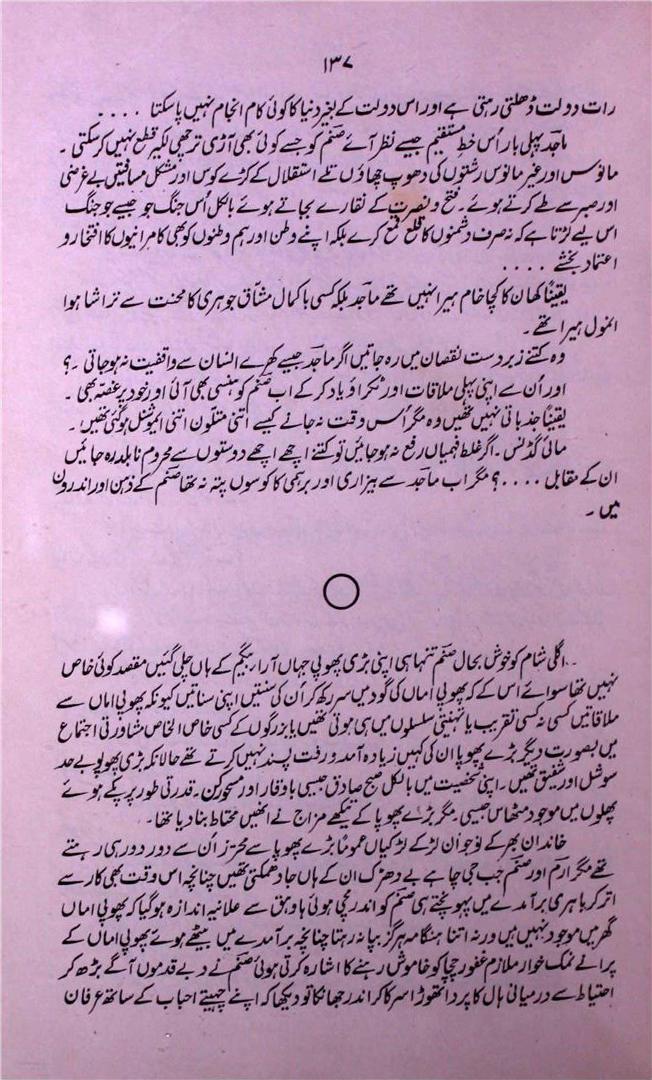 ۱۳۷
رات دولت ڈھلتی رہتی ہے اور اس دولت کے بغیر دنیا کا کوئی کام انجام نہیں پا سکتا ....
ماجد پہلی بار اُس خطِ مستقیم جیسے نظر آئے صنم کو جسے کوئی بھی آڑی ترچھی لکیر قطع نہیں کر سکتی ۔
مانوس اور غیر مانوس رشتوں کی دھوپ چھاؤں تلے استقلال کے کڑے کوس اور مشکل مسافتیں بے غرضی
اور صبر سے طے کرتے ہوئے ۔ فتح و نصرت کے نقارے بجاتے ہوئے بالکل اُس جنگ جو جیسے جو جنگ
اس لیے لڑتا ہے کہ نہ صرف دشمنوں کا قلع قمع کرے بلکہ اپنے وطن اور ہم وطنوں کو بھی کامرانیوں کا افتخار و
اعتماد بخشے ....
یقیناً کھان کا کچا خام ہیرا نہیں تھے ماجد بلکہ کسی باکمال مشّاق جوہری کا محنت سے تراشا ہوا
انمول ہیرا تھے ۔
وہ کتنے زبردست نقصان میں رہ جاتیں اگر ماجد جیسے کھرے انسان سے واقفیت نہ ہو جاتی ۔؟
اور اُن سے اپنی پہلی ملاقات اور ٹکراؤ یاد کر کے اب صنم کو ہنسی بھی آئی اور خود پر غصّہ بھی ۔
یقیناً جذباتی نہیں تھیں وہ مگر اُس وقت نہ جانے کیسے اتنی متلون اتنی ایموشنل ہو گئی تھیں ۔
مائی گڈنس ۔ اگر غلط فہمیاں رفع نہ ہو جائیں تو کتنے اچھے اچھے دوستوں سے محروم نابلد رہ جائیں
ان کے مقابل ....؟ مگر اب ماجد سے بیزاری اور برہمی کا کوسوں پتہ نہ تھا صنم کے ذہن اور اندرون
میں ۔
۔۔ اگلی شام کو خوش بحال صنم تنہا ہی اپنی بڑی پھوپی جہاں آرا بیگم کے ہاں چلی گئیں مقصد کوئی خاص
نہیں تھا سوائے اس کے کہ پھوپی اماں کی گود میں سر رکھ کر اُن کی سنتیں اپنی سناتیں کیونکہ پھوپی اماں سے
ملاقاتیں کسی نہ کسی تقریب یا تہنیتی سلسلوں میں ہی ہوتی تھیں یا بزرگوں کے کسی خاص الخاص مشاورتی اجتماع
میں بصورت دیگر بڑے پھوپا ان کی کہیں زیادہ آمد و رفت پسند نہیں کرتے تھے حالانکہ بڑی پھوپو بے حد
سوشل اور شفیق تھیں ۔ اپنی شخصیت میں بالکل صبح صادق جیسی باوقار اور مسحور کن ۔ قدرتی طور پر پکے ہوئے
پھلوں میں موجود مٹھاس جیسی ۔ مگر بڑے پھوپا کے تیکھے مزاج نے انھیں محتاط بنا دیا تھا ۔
خاندان بھر کے نوجوان لڑکے لڑکیاں عموماً بڑے پھوپا سے محترز اُن سے دور دور ہی رہتے
تھے مگر ارم اور صنم جب جی چاہے بے دھڑک ان کے ہاں جا دھمکتی تھیں چنانچہ اس وقت بھی کار سے
اتر کر باہری برآمدے میں پہونچتے ہی صنم کو اندر مچی ہوئی ہاو ہق سے علانیہ اندازہ ہو گیا کہ پھوپی اماں
گھر میں موجود نہیں ہیں ورنہ اتنا ہنگامہ ہرگز بپا نہ رہتا چنانچہ برآمدے میں بیٹھے ہوئے پھوپی اماں کے
پرانے نمک خوار ملازم غفور چچا کو خاموش رہنے کا اشارہ کرتی ہوئی صنم نے دبے قدموں آگے بڑھ کر
احتیاط سے درمیانی ہال کا پردا تھوڑا سرکا کر اندر جھانکا تو دیکھا کہ اپنے چہیتے احباب کے ساتھ عرفان